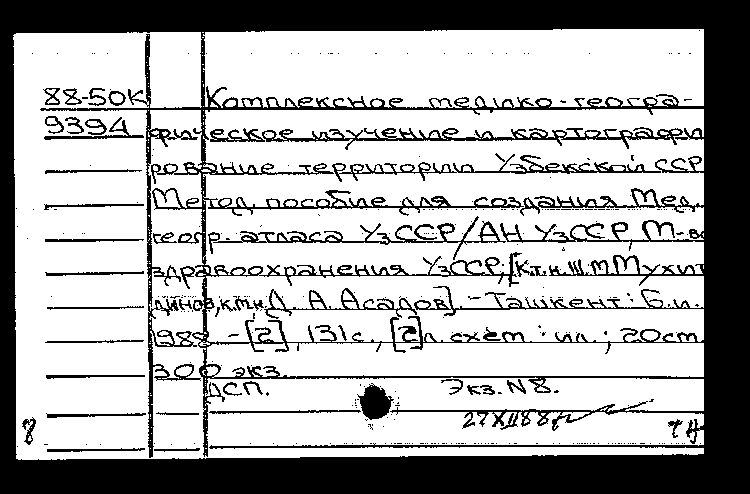 88-50К Комплексное медико-геогра-
9394 фическое изучение и картографи
рование территории Узбекской ССР
Метод. пособие для создания Мед.
геогр. атласа УзССР/АН УзССР, М-во
здравоохранения УзССР; [К.т.н. Ш.М Мухит
динов, к.м.н. Д. А. Асадов]. - Ташкент: Б.и.
1988 - [2], 131 с., [2] л. схем : ил.; 20 см.
300 экз.
ДСП. Экз. N 8.
27 XII 88
8